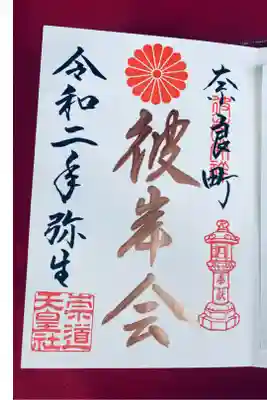 奈良町
彼岸会
令和二年弥生
崇道
天皇社